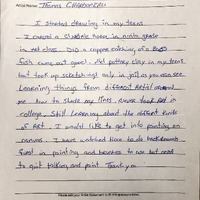 Artist Name: Thomas
I started drawing in my teens.
I carved a slipknot in ninth grade
in art class. Did a copper etching of a
fish came out good. Hit pottery clay in my teens
but took up sketching only in jail as you can see.
Learning things from different Artist around
me how to shade my lines. Never took Art in
college. Still learning about the different kinds
of ART. I would like to get into painting on
canvas. I have watched how to do backgrounds
first in painting and brushes to use but need
to quit talking and paint. Thank you